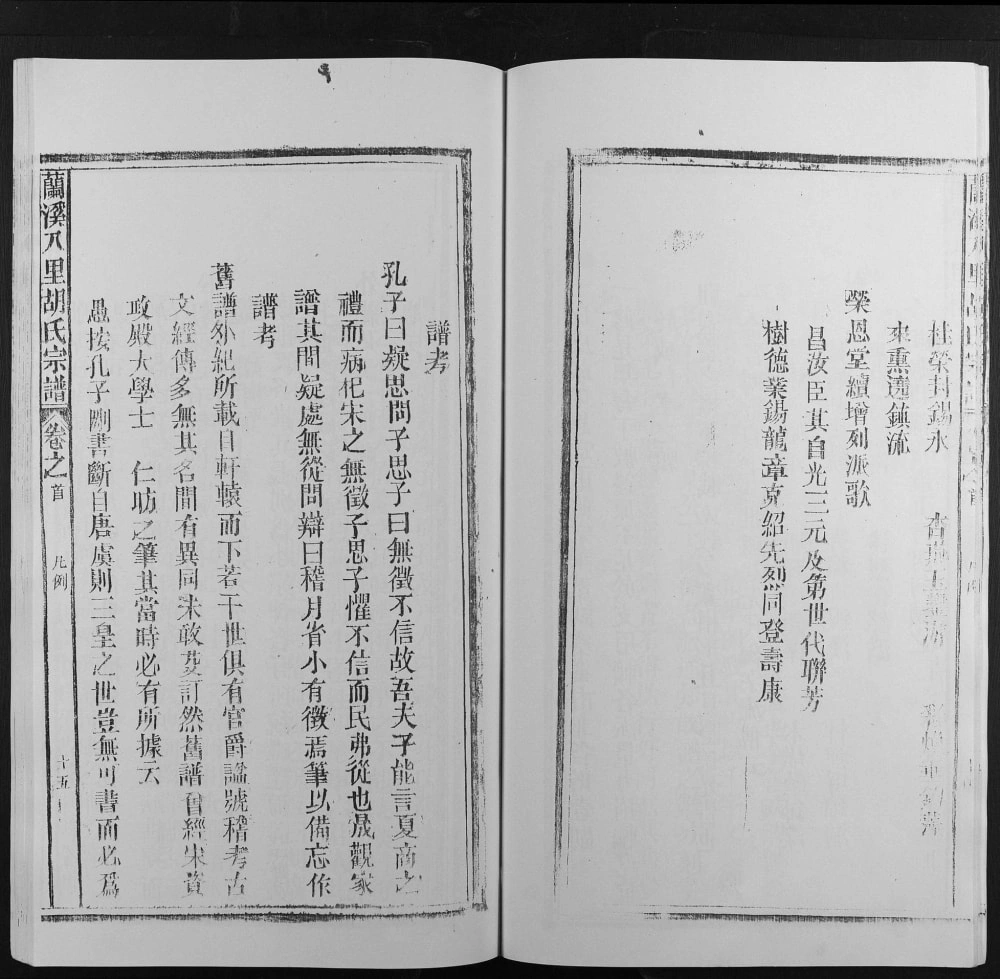 桂榮封錫永
來熏遠鎮流
榮恩堂續增列派歌
昌汝臣其自光三元及第世代聯芳
樹德業錫龍章克紹先烈同登壽康
譜考
孔子曰疑思問子思子曰無徵不信故吾夫子能言夏商之
禮而病杞宋之無徵子思子懼不信而民弗從也晟觀家
譜其間疑處無從問辯日稽月省小有徵焉筆以備忘作
譜考
舊譜外紀所載自軒轅而下若干世俱有官爵諡號稽考古
文經傳多無其名間有異同未敢妄訂然舊譜曾經宋資
政殿大學士 仁昉之筆其當時必有所據云
愚按孔子刪書斷自唐虞則三皇之世豈無可書而必爲
蘭溪八里胡氏宗譜 卷之首 凡例 十五